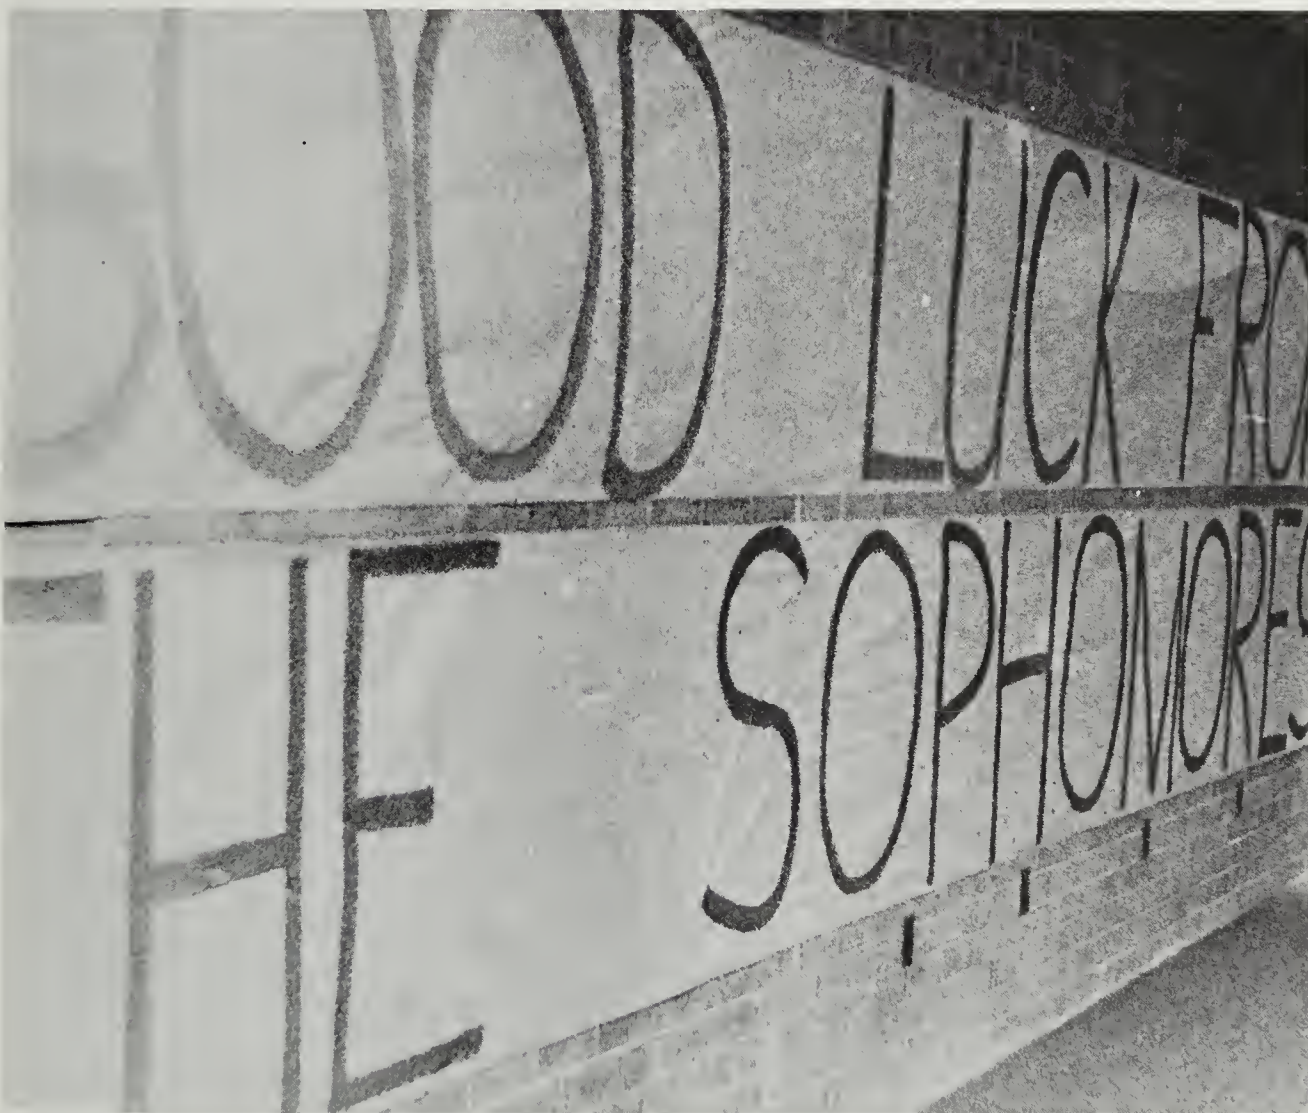 GOOD LUCK FRO
THE SOPHOMORES